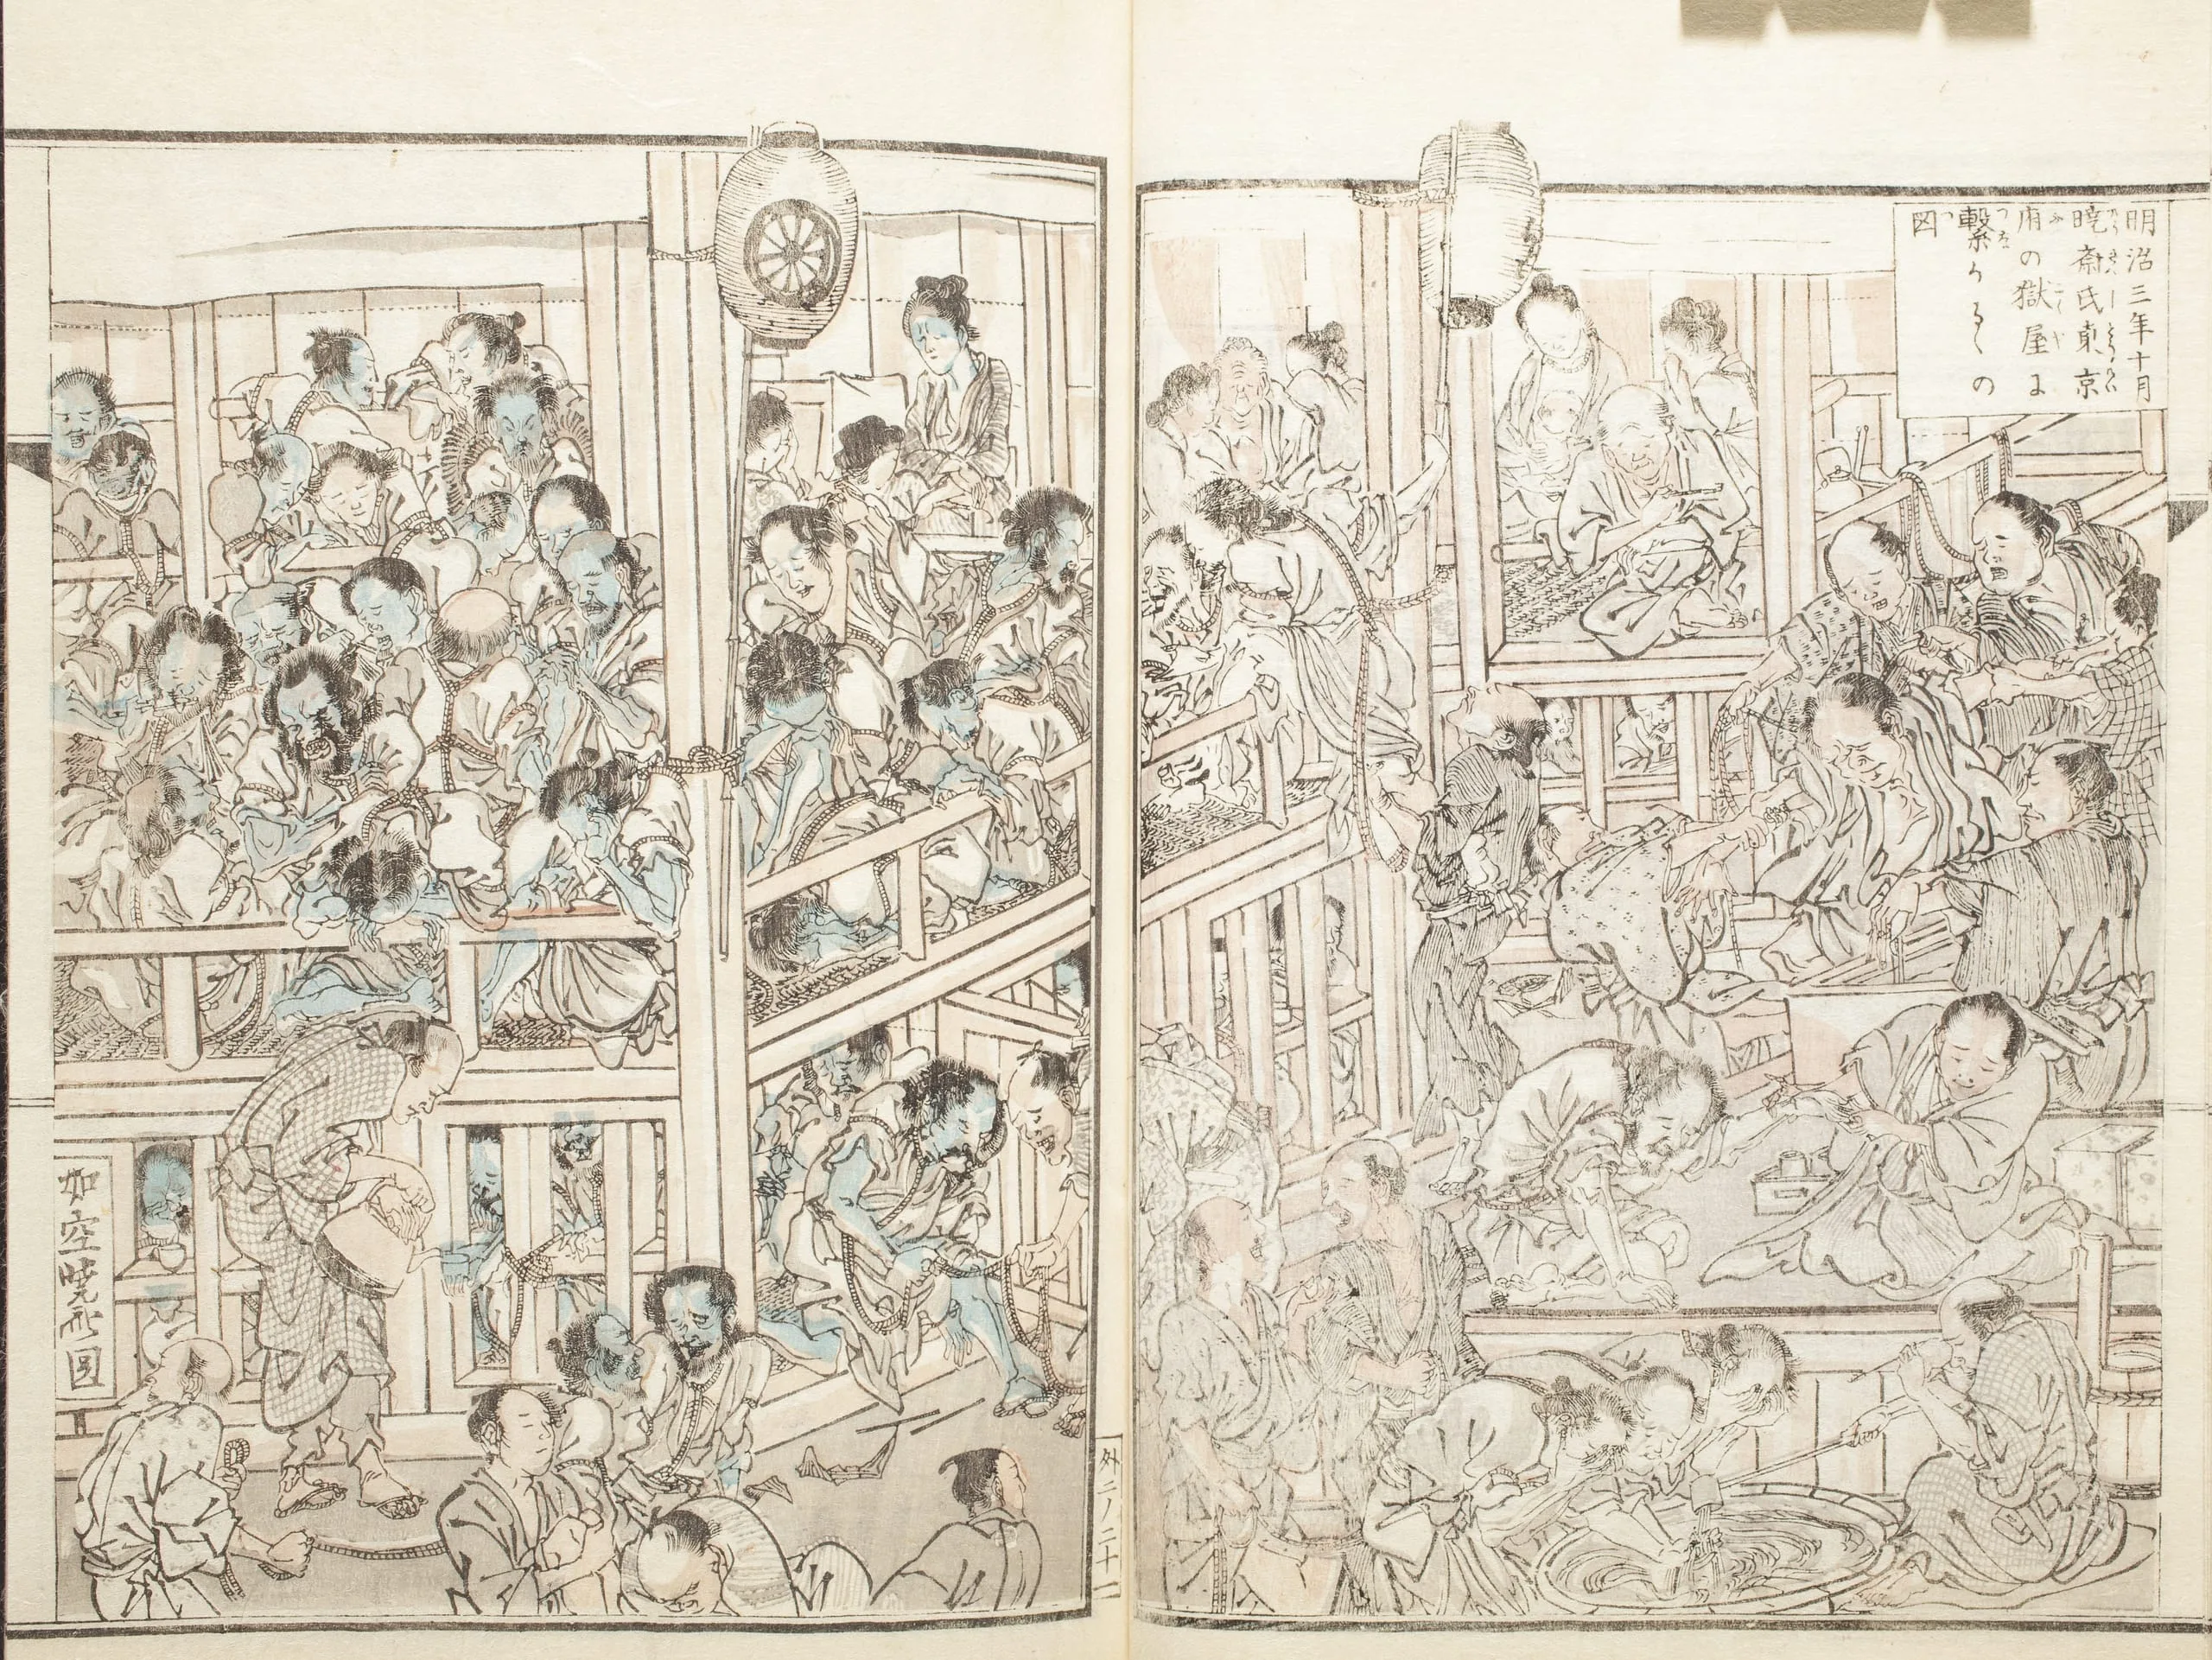 明治三年十月
暁斎氏東京
府の獄屋に
繋かるゝの
図
外二ノ二十一
如空暁斎図